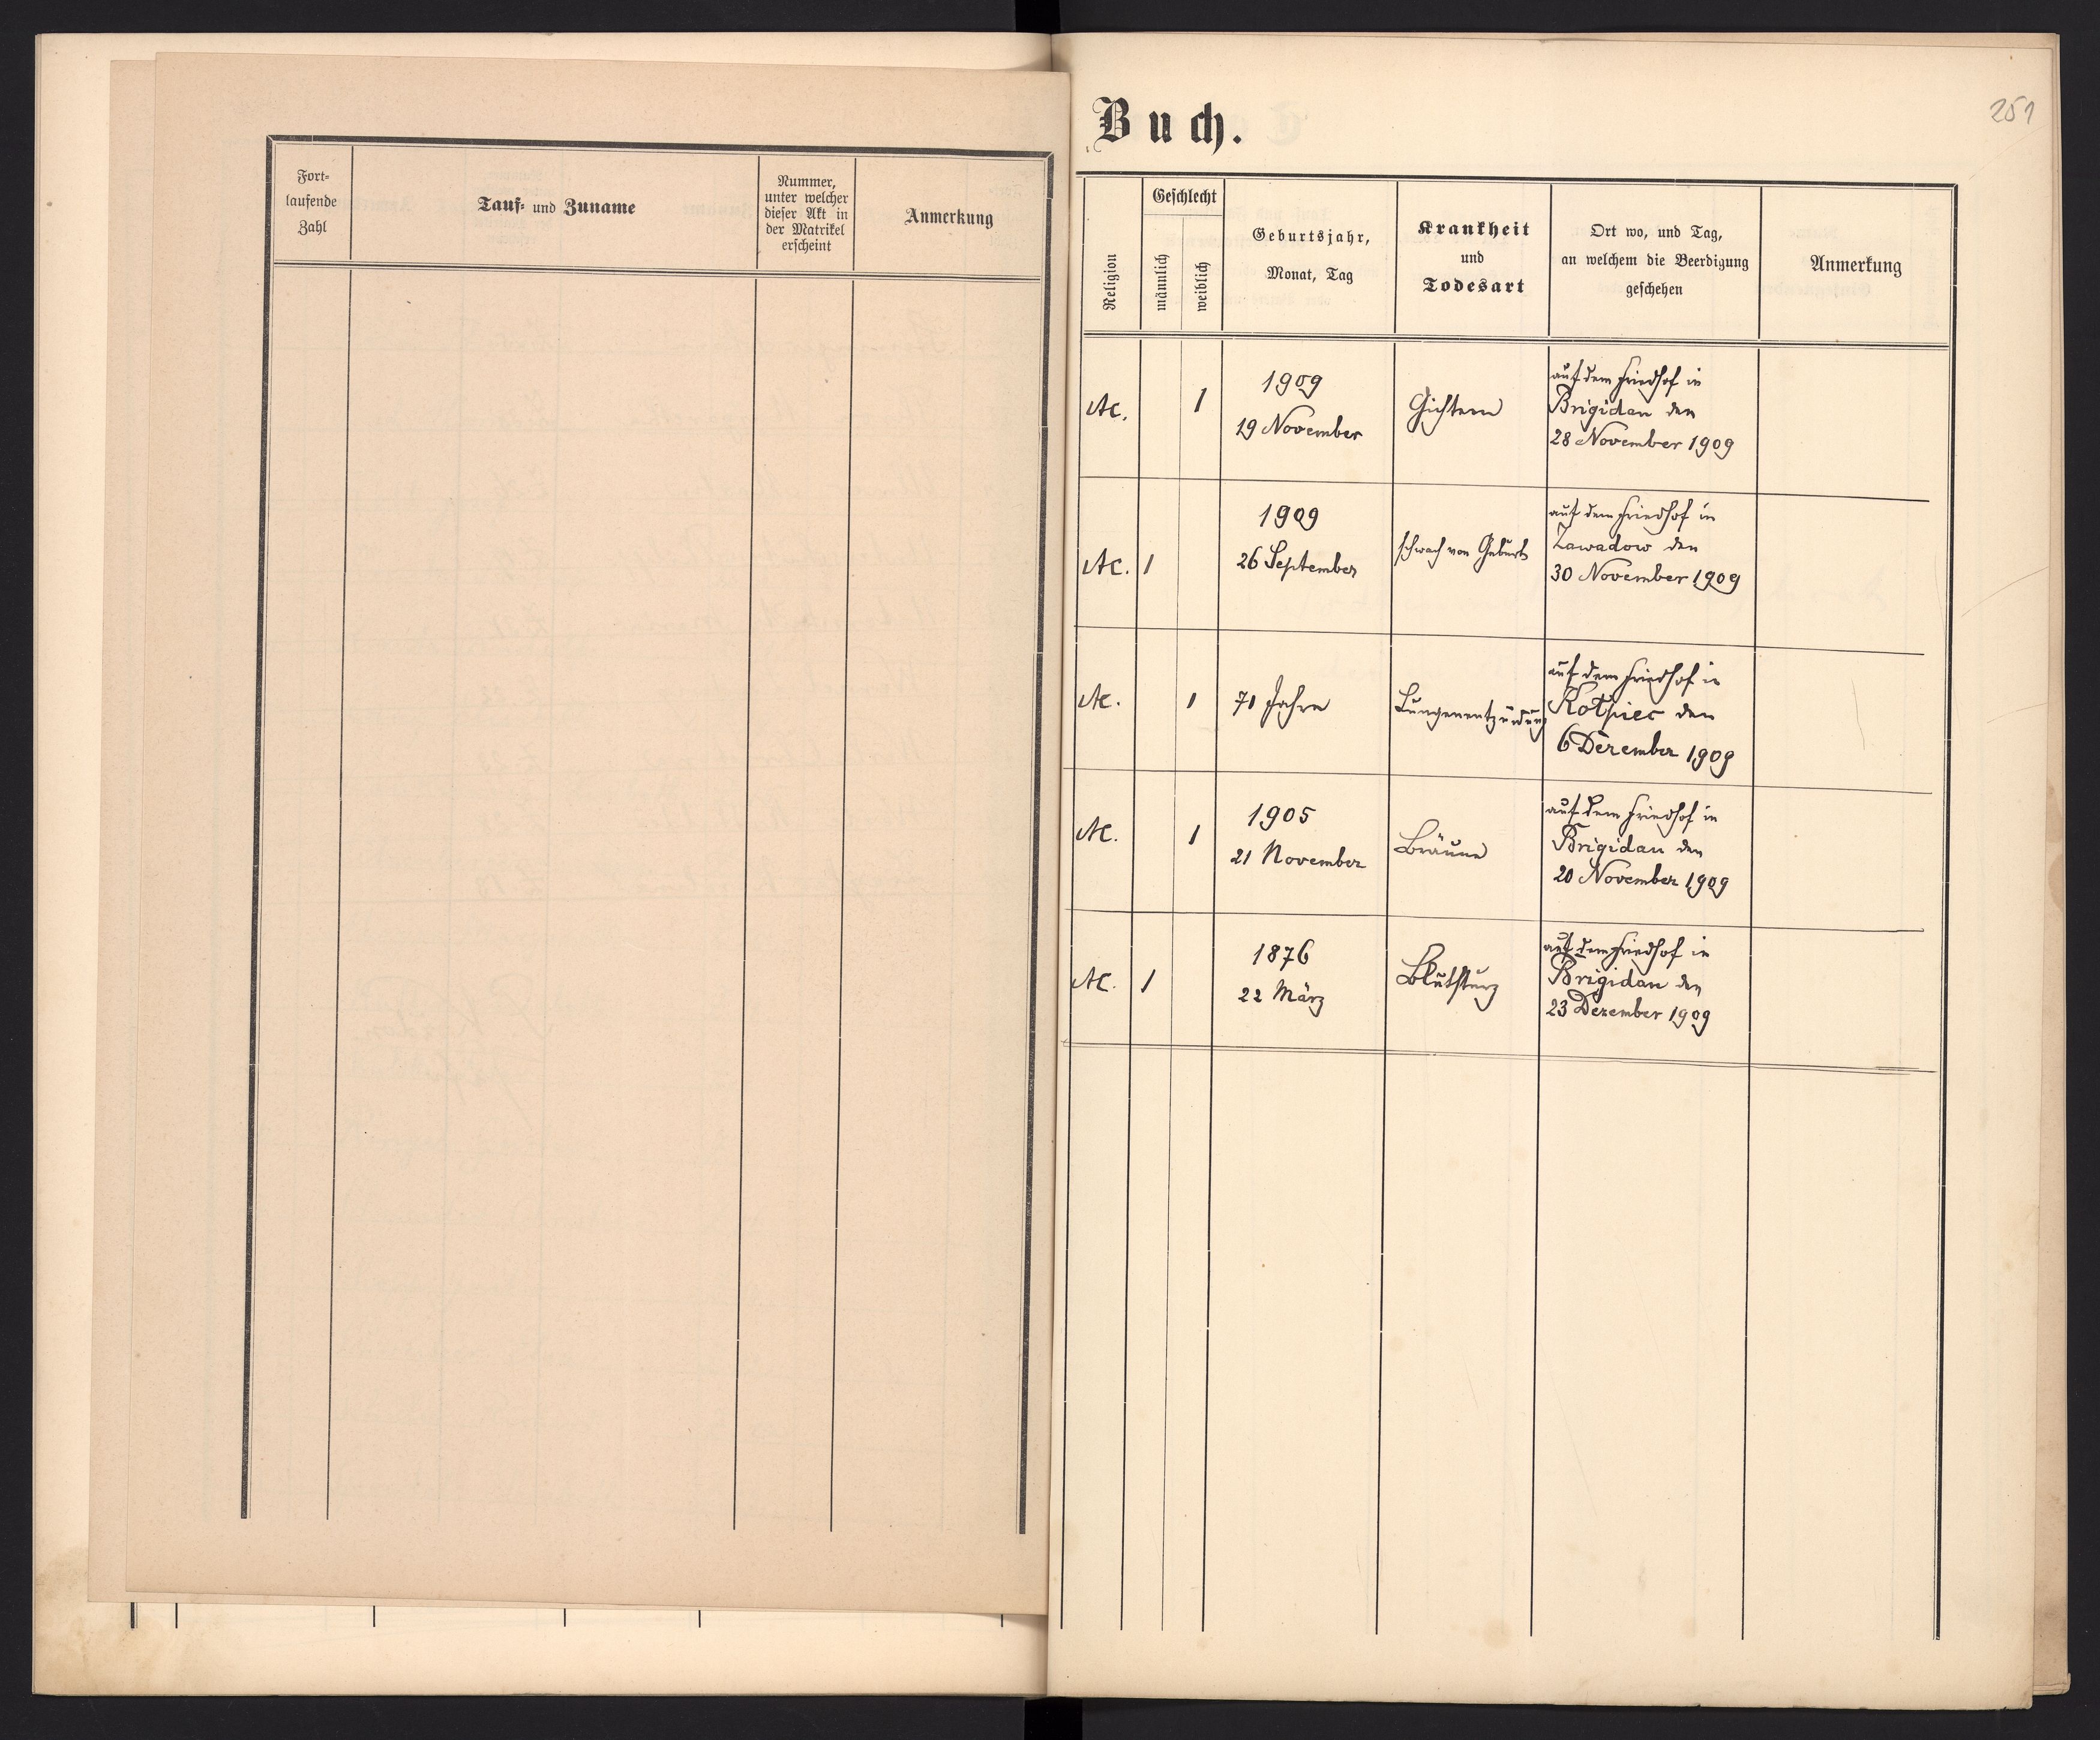 Fort-
laufende
Zahl
Tauf- und Zuname
Nummer,
unter welcher
dieser Akt in
der Matrikel
erscheint
Anmerkung
Buch.
251
Religion
Geschlecht
männlich
weiblich
Geburtsjahr,
Monat, Tag
Krankheit
und
Todesart
Ort wo, und Tag,
an welchem die Beerdigung
geschehen
Anmerkung
AC.
1
1909
19 November
Gichtern
auf dem Friedhof in
Brigidau den
28 November 1909
AC.
1
1909
26 September
schwach von Geburt
auf dem Friedhof in
Zawadow den
30 November 1909
AC.
1
71 Jahre
Lungenentzündung
auf dem Friedhof in
Kołpiec den
6 Dezember 1909
AC.
1
1905
21 November
Bräune
auf dem Friedhof in
Brigidau den
20 November 1909
AC.
1
1876
22 März
Blutsturz
auf dem Friedhof in
Brigidau den
23 Dezember 1909